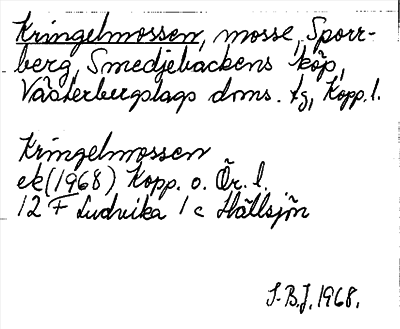 Kringelmossen, mosse, Sporr-
berg, Smedjebackens köp,
Västerbergslags doms. tg, Kopp. l.
Kringelmossen
ek (1968) Kopp. o. Ör. l.
12 F Ludvika 1 c Hällsjön
S.B.J. 1968.